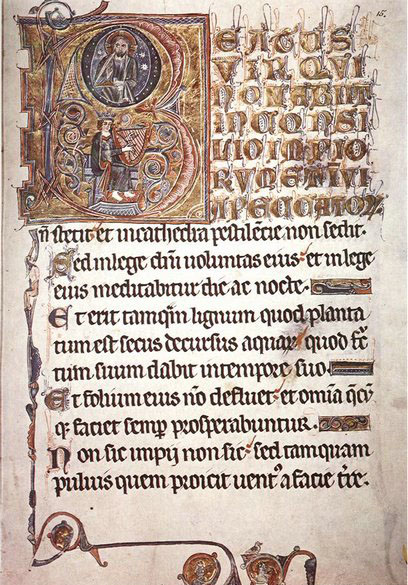 15.
BEATUS
VIR QVI
NON ABIIT
IN CONSI
LIO IMPIO
RVM ET IN VI
A PECCATOꝜ
n̄ stetit et in cathedra pestilēcie non sedit.
Sed in lege dn̄i uoluntas eius: et in lege
eius meditabitur die ac nocte.
Et erit tamq̄m lignum quod planta
tum est secus decursus aquaꝝ: quod fr̄c
tum suum dabit in tempore suo.
Et folium eius nō defluet: et om̄ia q̄cū
qꝫ faciet semꝑ prosperabuntur.
Non sic impij non sic: sed tamquam
puluis quem proicit uentꝰ a facie tr̄e.